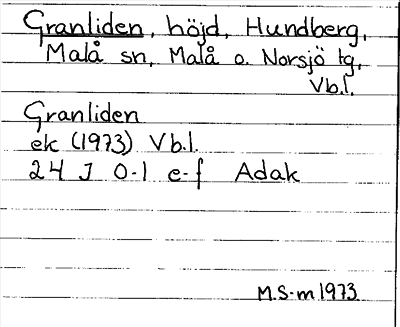 Granliden, höjd, Hundberg,
Malå sn, Malå o. Norsjö tg,
Vb.l.
Granliden
ek (1973) Vb.l.
24 J 0-1 e-f Adak
M.S-m 1973